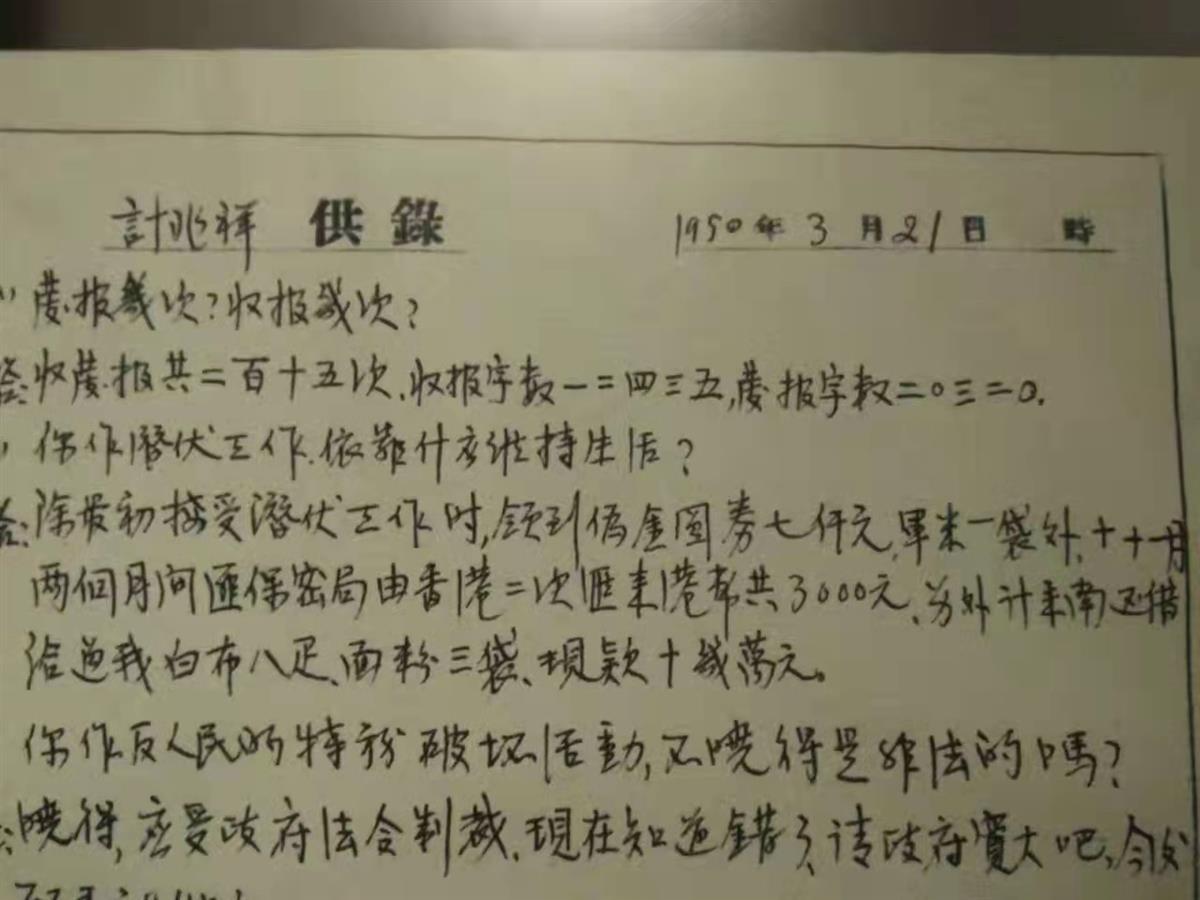 計兆祥 供錄 1950年3月21日 時
發报幾次?收报幾次?
答:收發报共二百十五次.收报字数一二四三五,發报字数二〇三二〇.
你作潛伏工作.依靠什么維持生活?
答:除最初接受潛伏工作时,領到偽金圆券七仟元,軍米一袋外.十十一月
两個月间匪保密局由香港二次匯来港幣共3000元、另外计采南还借
给过我白布八疋、面粉三袋、現款十幾萬元。
你作反人民的特務破坏活動,不曉得是非法的嗎?
曉得,应受政府法令制裁.現在知道錯了,请政府寬大吧、今後